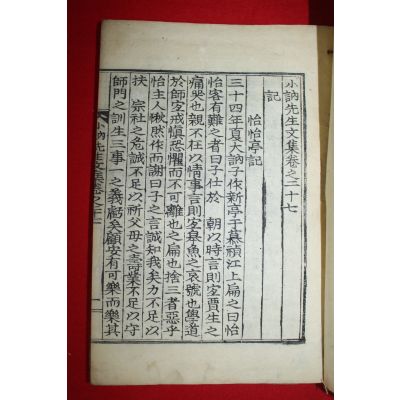 小訥先生文集卷之二十七
記
怡怡亭記
三十四年夏大訥子作新亭于慕禎江上扁之曰怡
怡客有難之者曰子仕於 朝以時言則宜賈生之
痛哭也親不在以情事言則宜皐魚之哀號也學道
於師宜戒愼恐懼而不可離也之扁也捨三者惡乎
怡主人愀然作而謝曰子之言誠知我矣力不足以
扶 宗社之危誠不足以祈父母之壽業不足以守
師門之訓生三事一之義虧矣顧安有可樂而樂其
小訥先生文集卷之
一